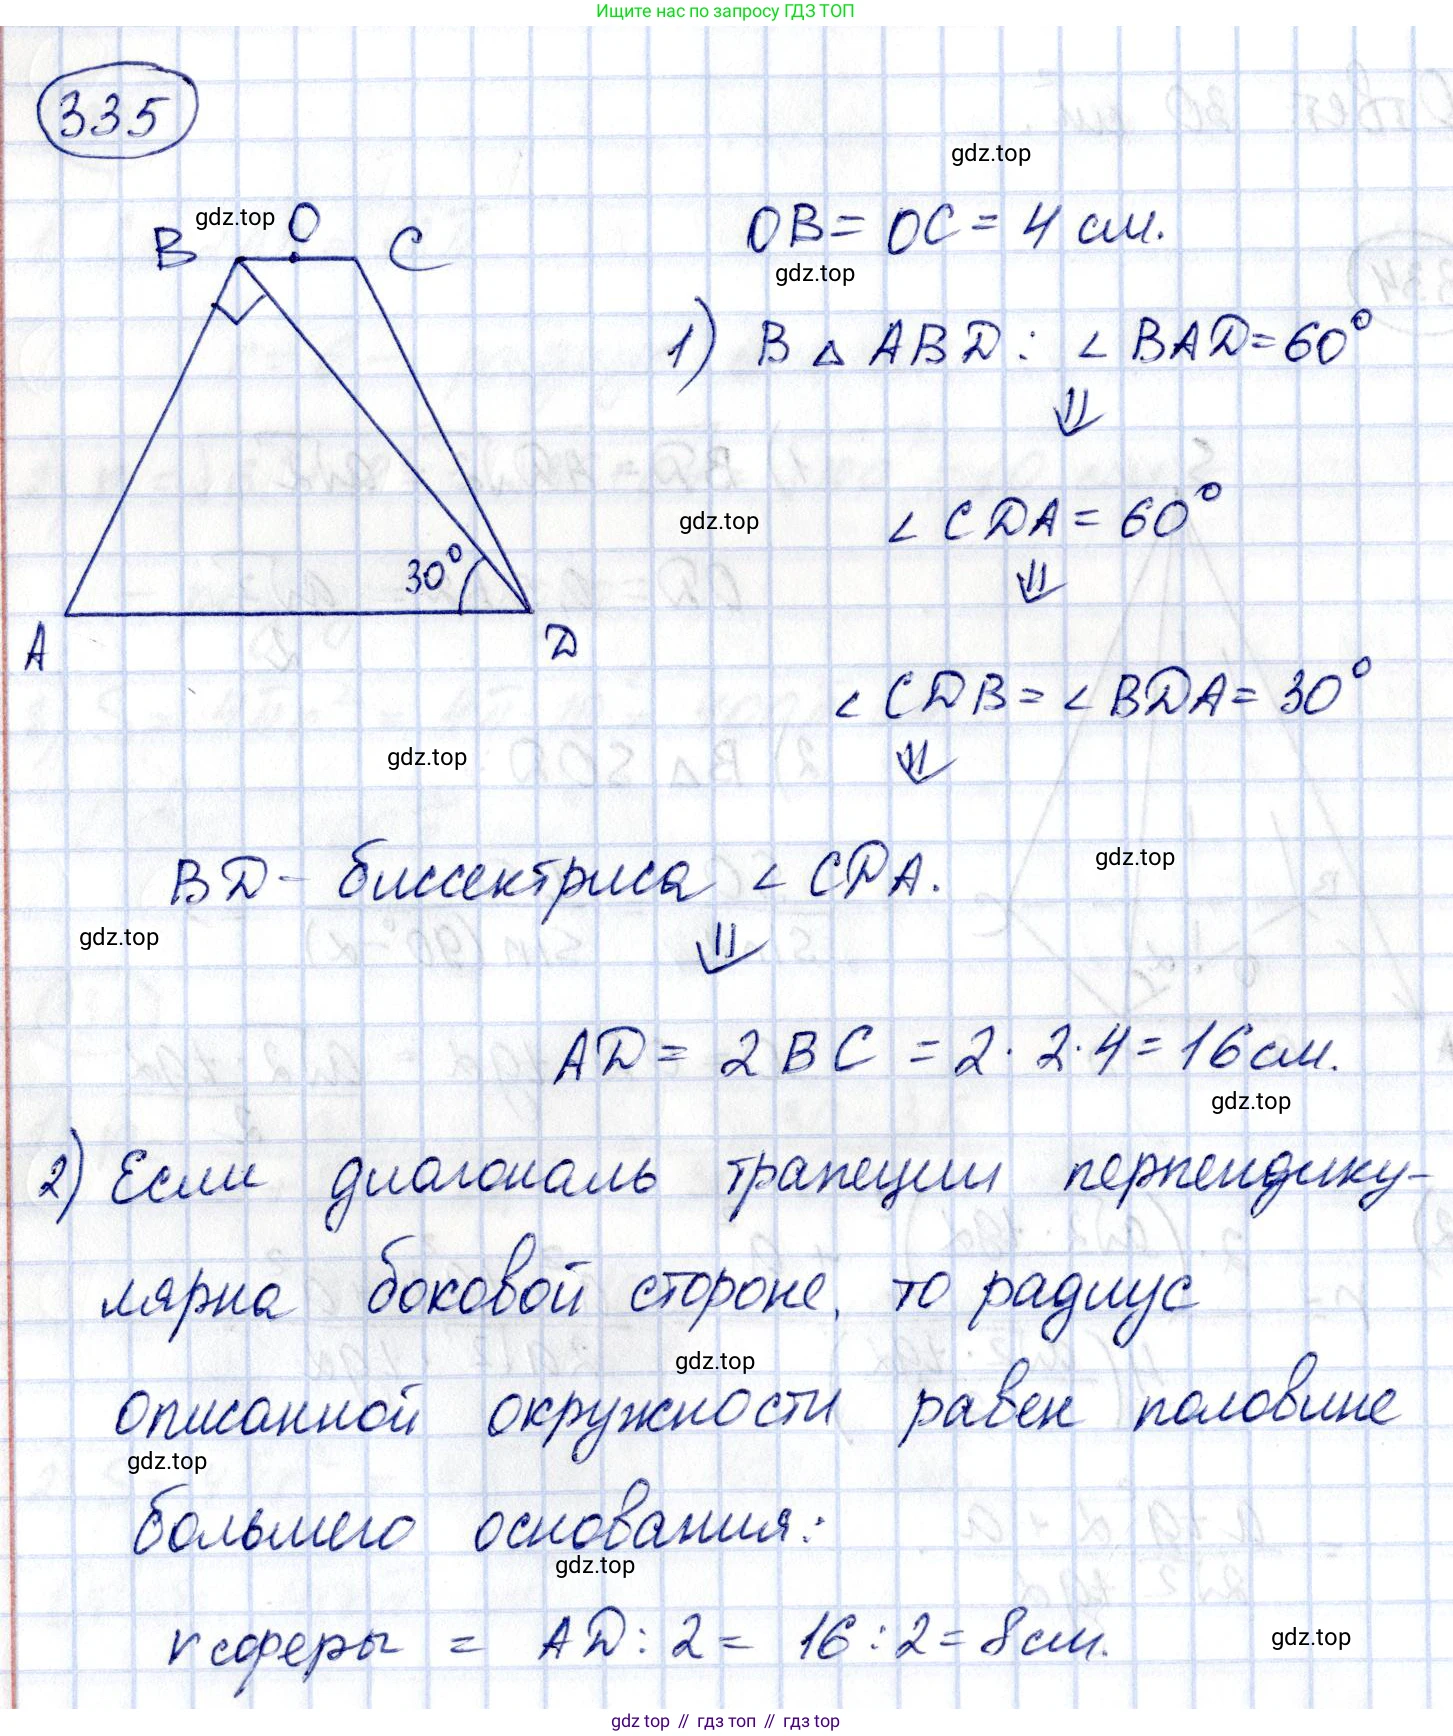 Ищите нас по запросу ГДЗ ТОП
335
gdz.top
gdz.top
B O C
OB = OC = 4 см.
gdz.top
1) В △ ABD: ∠ BAD = 60°
⇓
gdz.top
∠ CDA = 60°
⇓
30°
A D
∠ CDB = ∠ BDA = 30°
gdz.top
⇓
gdz.top
BD - биссектриса ∠ CDA.
gdz.top
⇓
AD = 2 BC = 2 · 2 · 4 = 16 см.
gdz.top
2) Если диагональ трапеции перпендику-
лярна боковой стороне, то радиус
gdz.top
описанной окружности равен половине
gdz.top
большего основания:
gdz.top
r сферы = AD : 2 = 16 : 2 = 8 см.
gdz.top
gdz top // гдз топ // гдз top